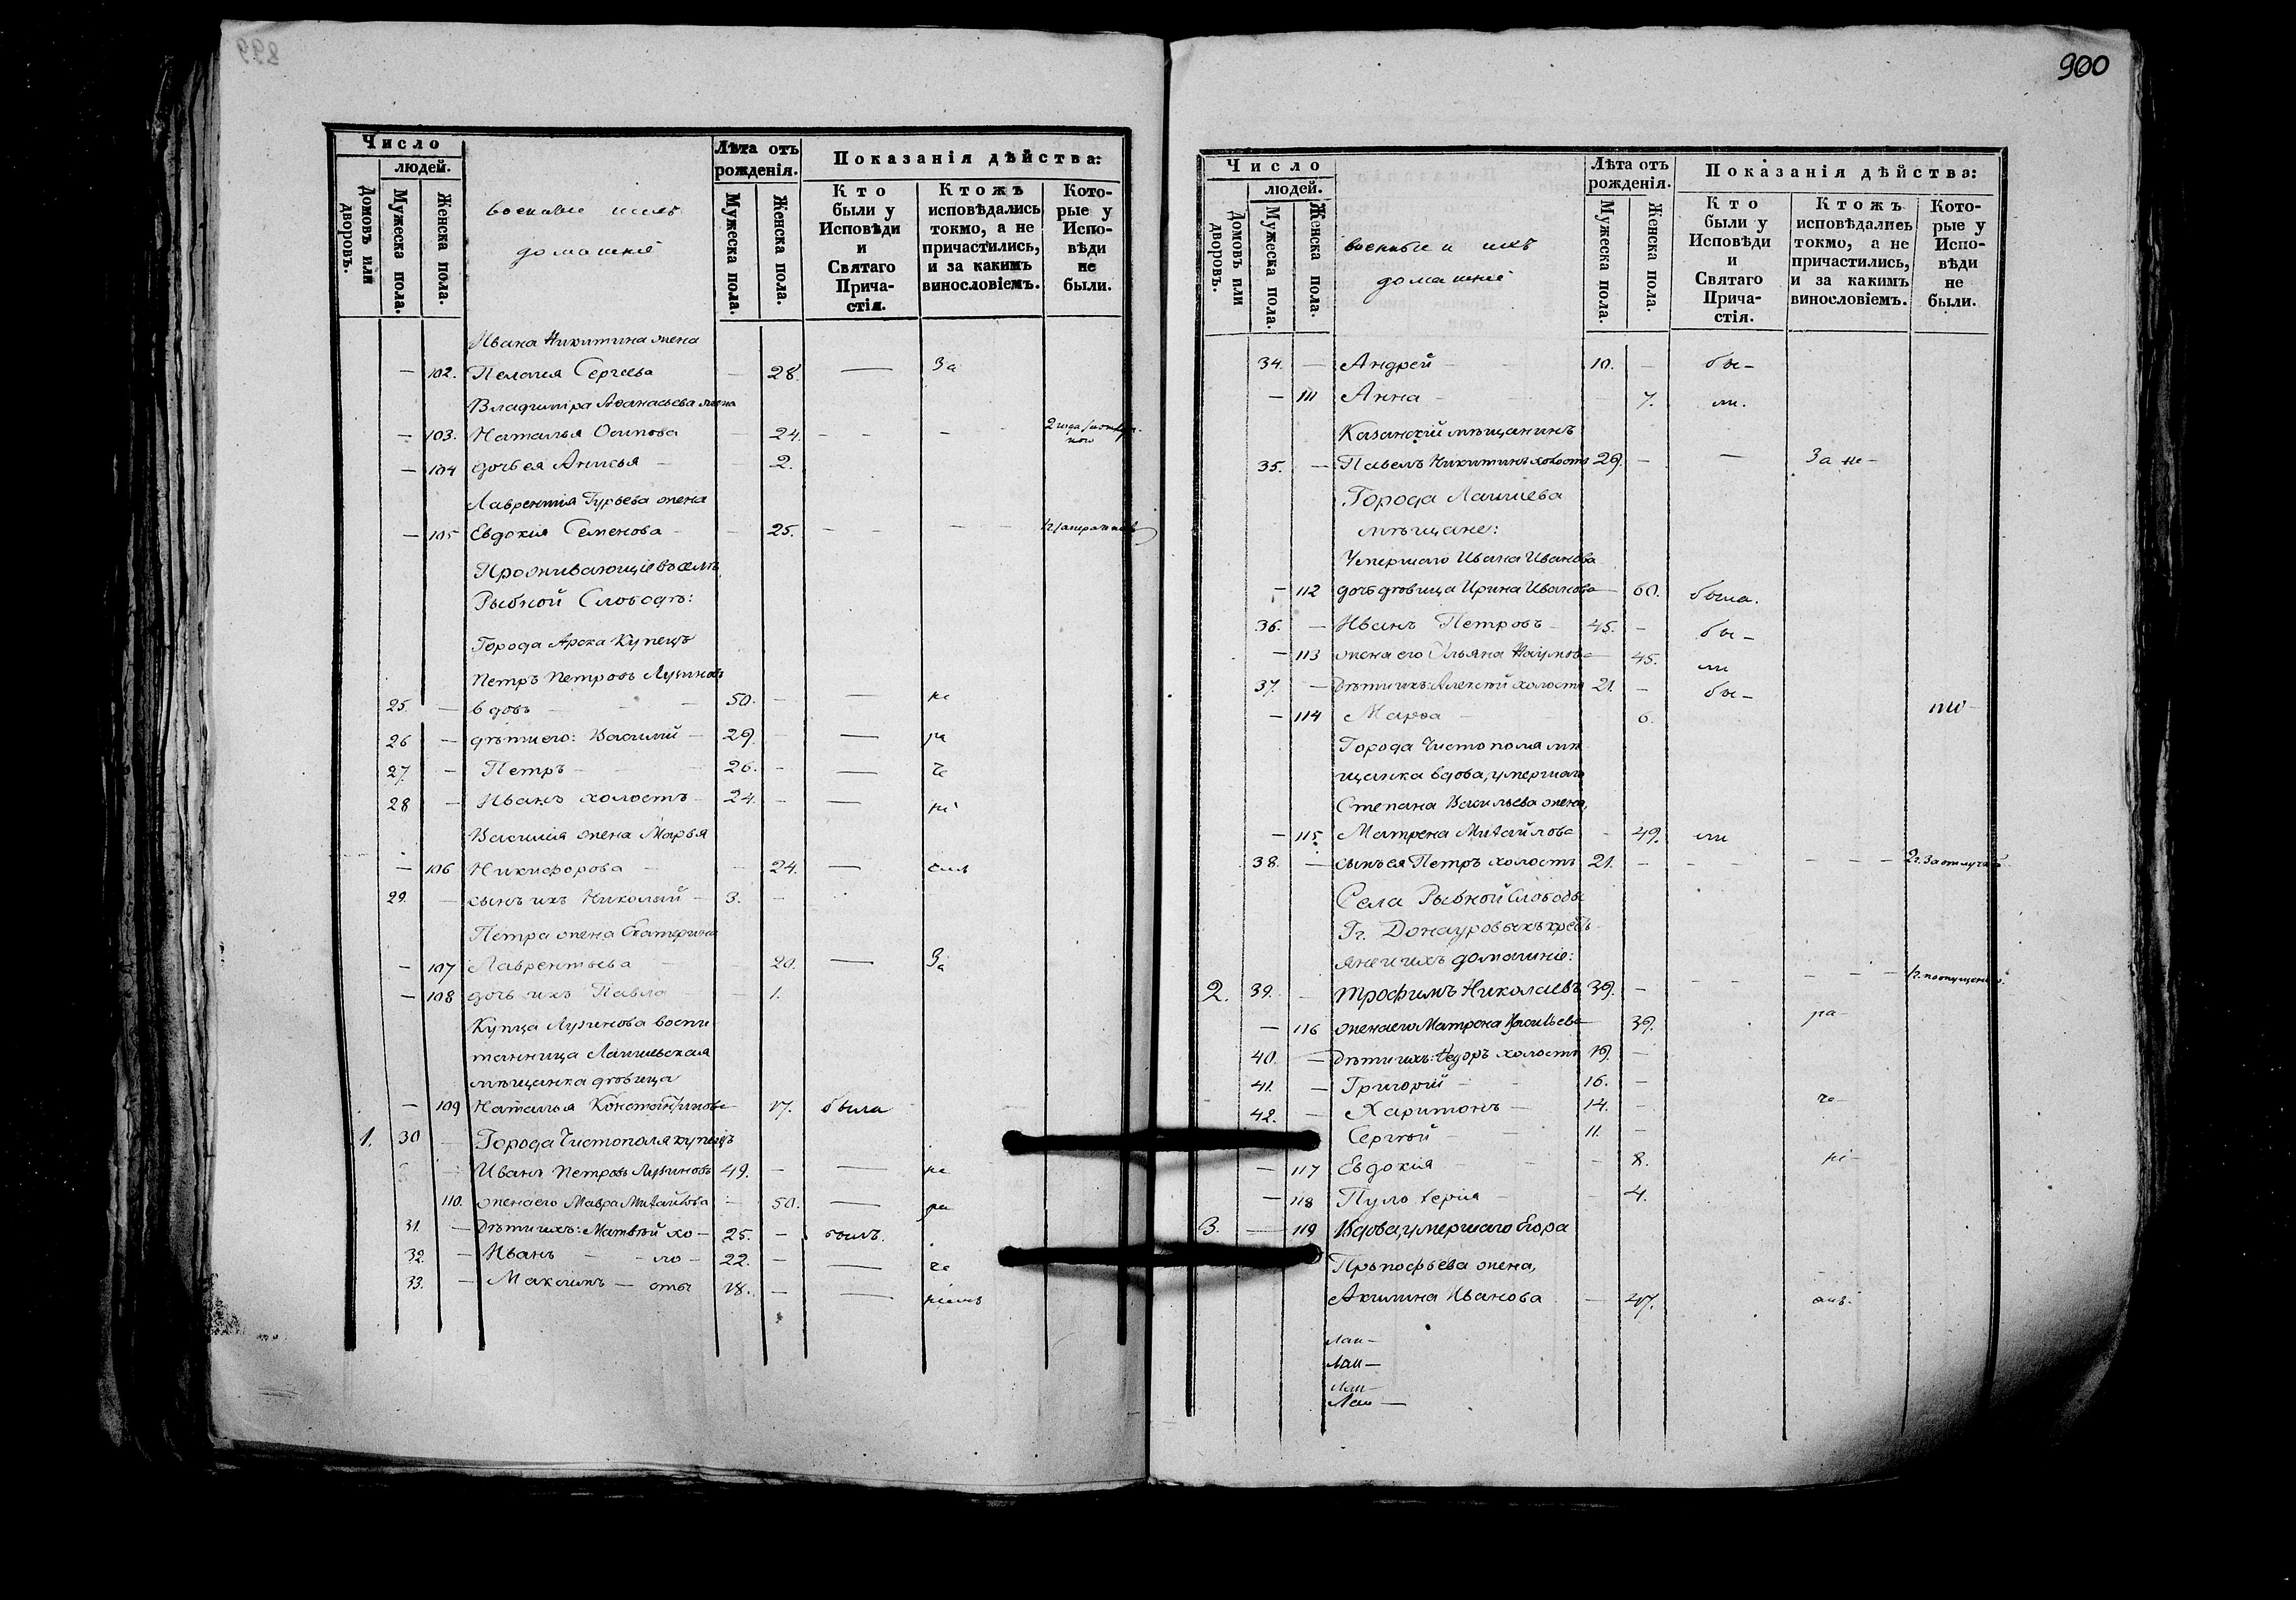 899
Число
людей.
Домовъ или дворовъ.
Мужеска пола.
Женска пола.
домашніе
Лѣта отъ рожденія.
Мужеска пола.
Женска пола.
Показанія дѣйства:
Кто были у Исповѣди и Святаго Причастія.
Ктожъ исповѣдались токмо, а не причастились, и за какимъ винословіемъ.
Которые у Исповѣди не были.
Ивана Никитина жена
— 102. Пелагея Сергеева — 28. — За
Владиміра Афанасьева жена
— 103. Наталья Осипова — 24. - - - 2 года
— 104 дочь ея Анисья — 2.
Лаврентія Гурьева жена
— 105 Евдокия Семенова — 25. - - - -
Проживающіе въ селѣ
Рыбной Слободѣ:
Города Арска Купецъ
Петръ Петровъ Лузиновъ
25. — вдовъ — 50. — — не
26 — дѣти его: Василий — 29. — — ра
27. — Петръ — 26. — — че
28 — Иванъ холостъ — 24. — — ні
Василія жена Марья
— 106 Никифорова — 24. — емъ
29. — сынъ ихъ Николай — 3. —
Петра жена Екатерина
— 107 Лаврентьева — 20. — За
— 108 дочь ихъ Павла — 1.
Купца Лузинова воспи
танница Лаишевская
мѣщанка дѣвица
— 109 Наталья Константинова — 17. была
1. 30 — Города Чистополя купецъ
— Иванъ Петровъ Лузиновъ 49. — — не
110. жена его Мавра Михайлова — 50. — ра
31. — Дѣти ихъ: Матвѣй хо — 25. — былъ.
32. — Иванъ — ло — 22. — — че
33. — Максимъ — сты 18. — — ніемъ
900
Число
людей.
Домовъ или дворовъ.
Мужеска пола.
Женска пола.
военные и ихъ
домашніе
Лѣта отъ рожденія.
Мужеска пола.
Женска пола.
Показанія дѣйства:
Кто были у Исповѣди и Святаго Причастія.
Ктожъ исповѣдались токмо, а не причастились, и за какимъ винословіемъ.
Которые у Исповѣди не были.
34. — Андрей — 10. — бы—
— 111 Анна — 7. ли.
Казанскій мѣщанинъ
35. — Павелъ Никитинъ холостъ 29. — — За не—
Города Лаишева
мѣщане:
Умершаго Ивана Иванова
— 112 дочь дѣвица Ирина Иванова — 60. была.
36. — Иванъ Петровъ — 45. — бы—
— 113 жена его Ульяна Наумова — 45. ли
37. — Дѣти ихъ: Алексѣй холостъ 21. — бы—
— 114 Марѳа — 6.
Города Чистополя мѣ
щанка вдова, умершаго
Степана Васильева жена,
— 115. Матрена Михайлова — 49. ли
38. — сынъ ея Петръ холостъ 21. — - - - - 2 г. За отлучкой
Села Рыбной Слободы
Гг. Донауровыхъ кресть
яне и ихъ домашніе:
2. 39. — Трофимъ Николаевъ 39. — - - - - 1 г. по опущенію.
— 116 жена его Матрена Васильева — 39. ра—
40. — Дѣти ихъ: Ѳедоръ холостъ 19. —
41. — Григорий — 16. —
42. — Харитонъ — 14. — че—
Сергѣй — 11. —
— 117 Евдокія — 8. ні—
— 118 Пульхерія — 4.
3. — 119 Вдова, умершаго Егора
жена,
Акилина Иванова — 47. емъ.